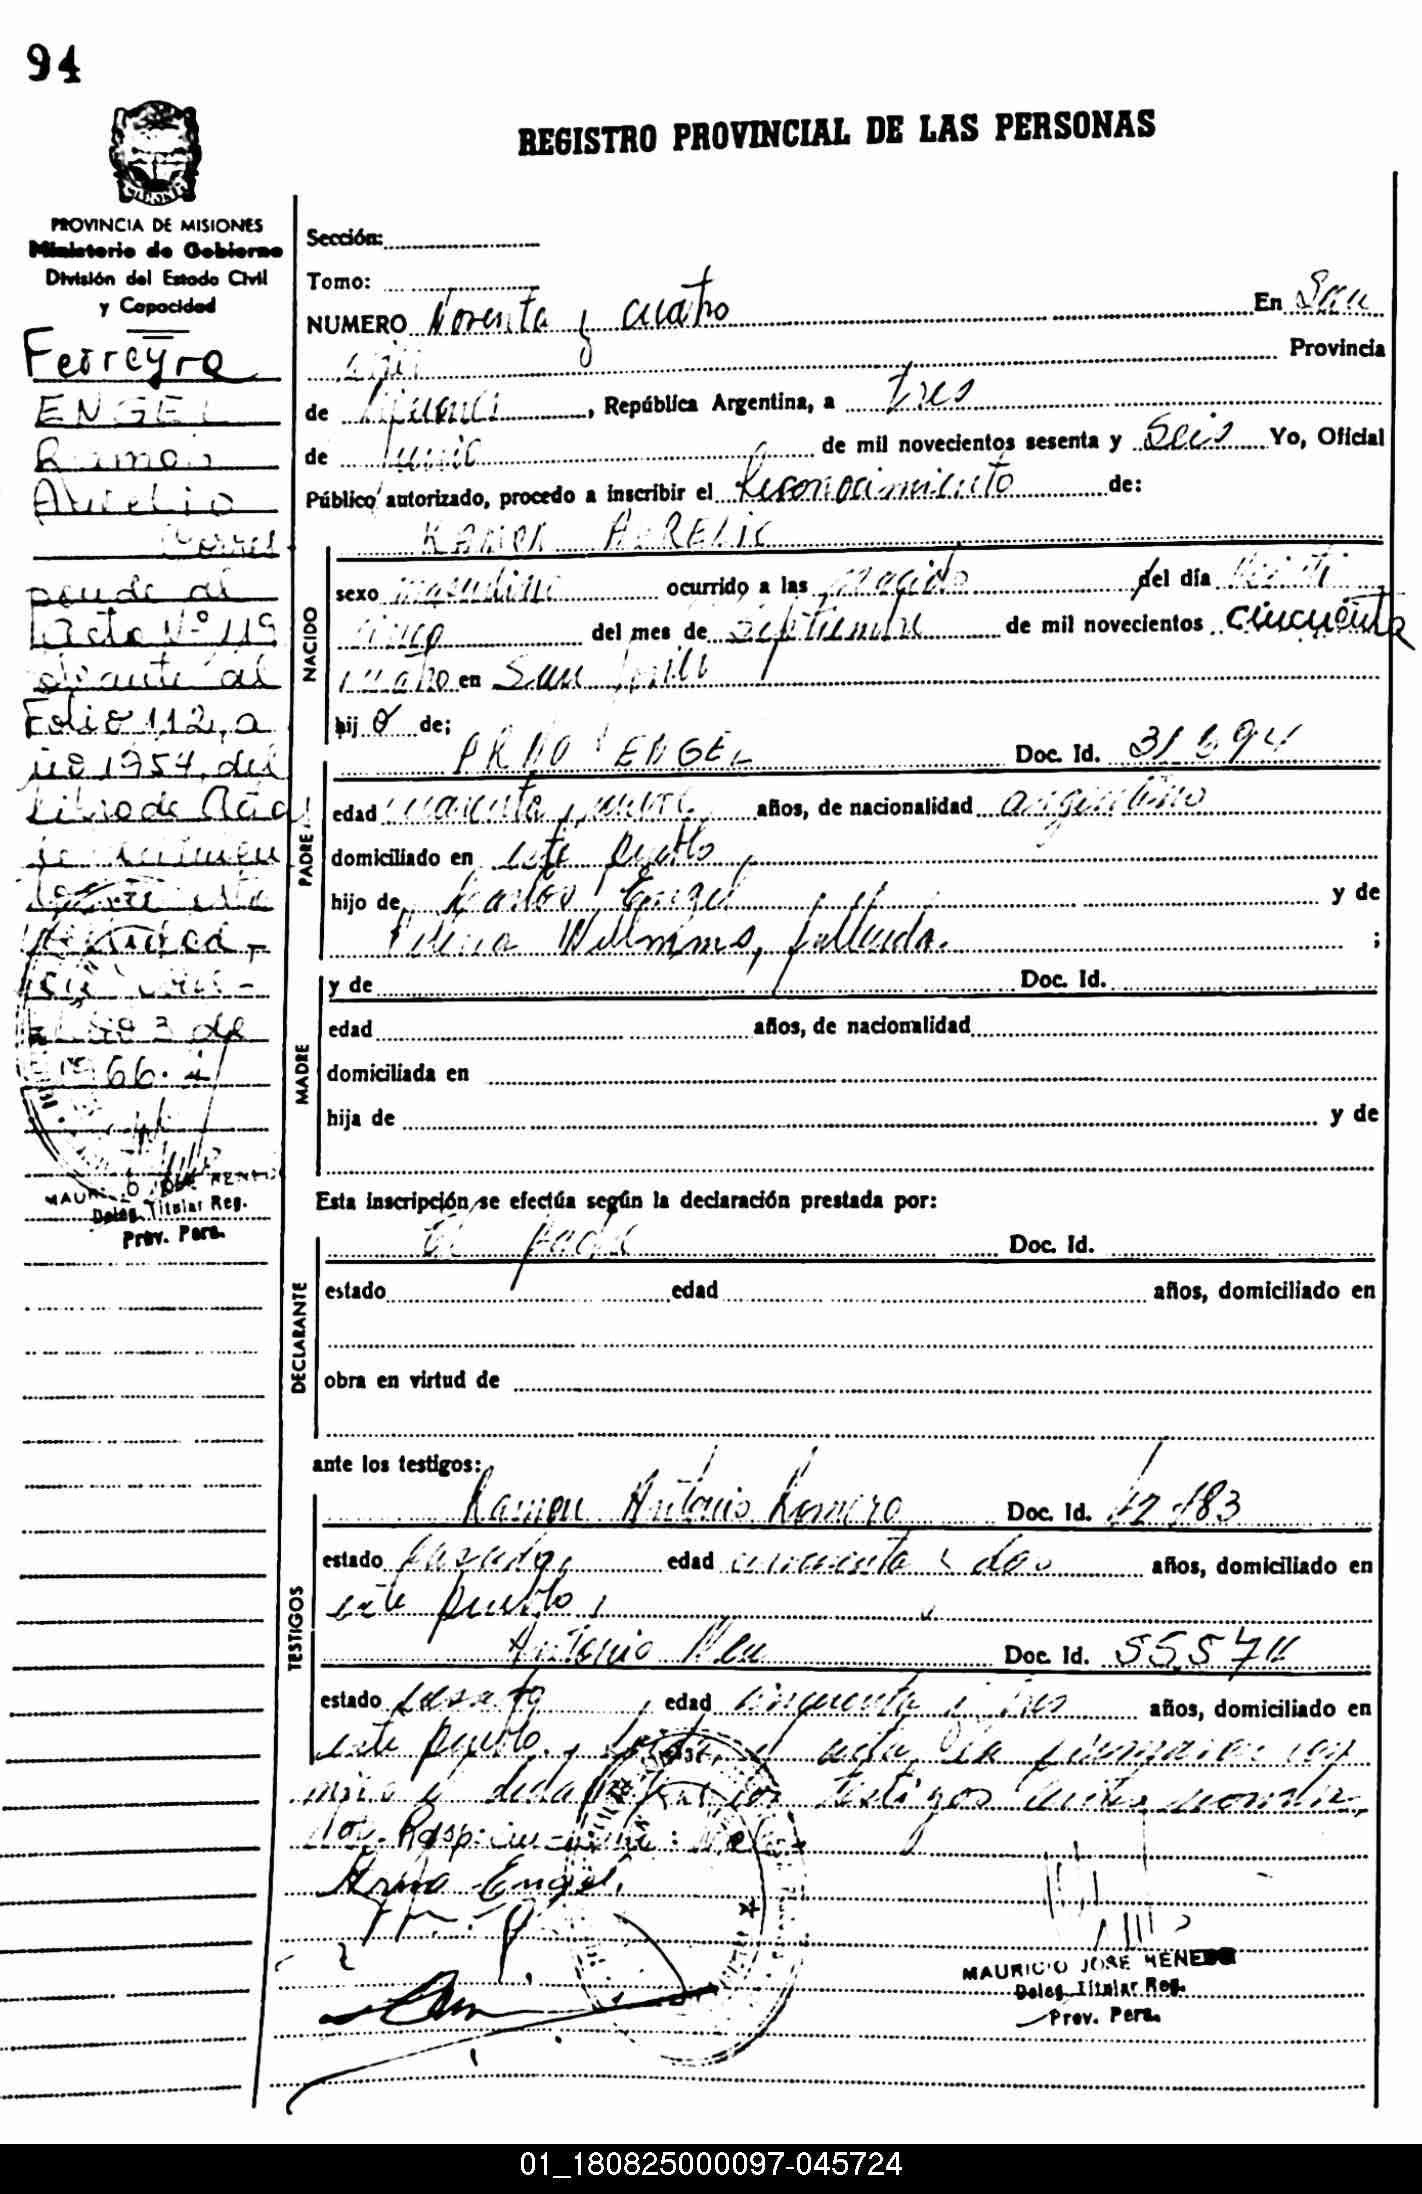 94
REGISTRO PROVINCIAL DE LAS PERSONAS
PROVINCIA DE MISIONES
Ministerio de Gobierno
División del Estado Civil
y Capacidad
Ferreyra
ENGEL
Ramon
Aurelio
Corres
ponde al
Acta Nº 119
obrante al
Folio 112, a
ño 1954, del
Libro de
3 de
1966.
MAURICIO JOSE
Deleg. Titular Reg.
Prov. Pers.
Sección:
Tomo:
NUMERO Noventa y cuatro En San
Provincia
de Misiones, República Argentina, a tres
de Junio de mil novecientos sesenta y Seis Yo, Oficial
Público autorizado, procedo a inscribir el Reconocimiento de:
RAMON AURELIO
NACIDO
sexo masculino ocurrido a las del día Veinti
cinco del mes de Septiembre de mil novecientos cincuenta
cuatro en San
hij o de;
PADRE
ARNO ENGEL Doc. Id.
edad cuarenta y nueve años, de nacionalidad argentino
domiciliado en este pueblo,
hijo de Carlos Engel y de
Willmms, fallecida. ;
MADRE
y de Doc. Id.
edad años, de nacionalidad
domiciliada en
hija de y de
Esta inscripción se efectúa según la declaración prestada por:
DECLARANTE
El padre Doc. Id.
estado edad años, domiciliado en
obra en virtud de
ante los testigos:
TESTIGOS
Ramon Antonio Romero Doc. Id.
estado casado, edad cincuenta y dos años, domiciliado en
este pueblo,
Antonio Doc. Id. 55.574
estado casado, edad cinquenta y tres años, domiciliado en
este pueblo, el acta, la firmaron con
migo el los testigos antes nombra
dos.
Arno Engel.
MAURICIO JOSE
Deleg. Titular Reg.
Prov. Pers.
01_180825000097-045724